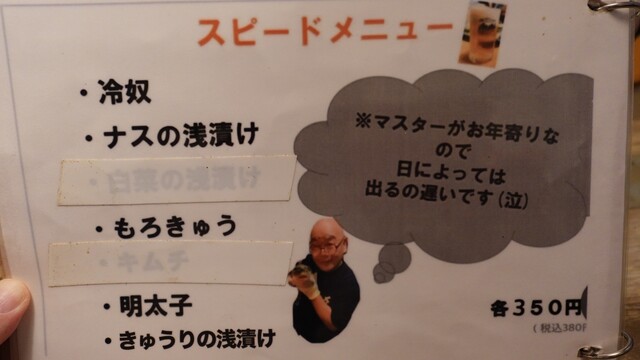 スピードメニュー
・冷奴
・ナスの浅漬け
・白菜の浅漬け
・もろきゅう
・キムチ
・明太子
・きゅうりの浅漬け
※マスターがお年寄りな
ので
日によっては
出るの遅いです(泣)
各350円
(税込380円